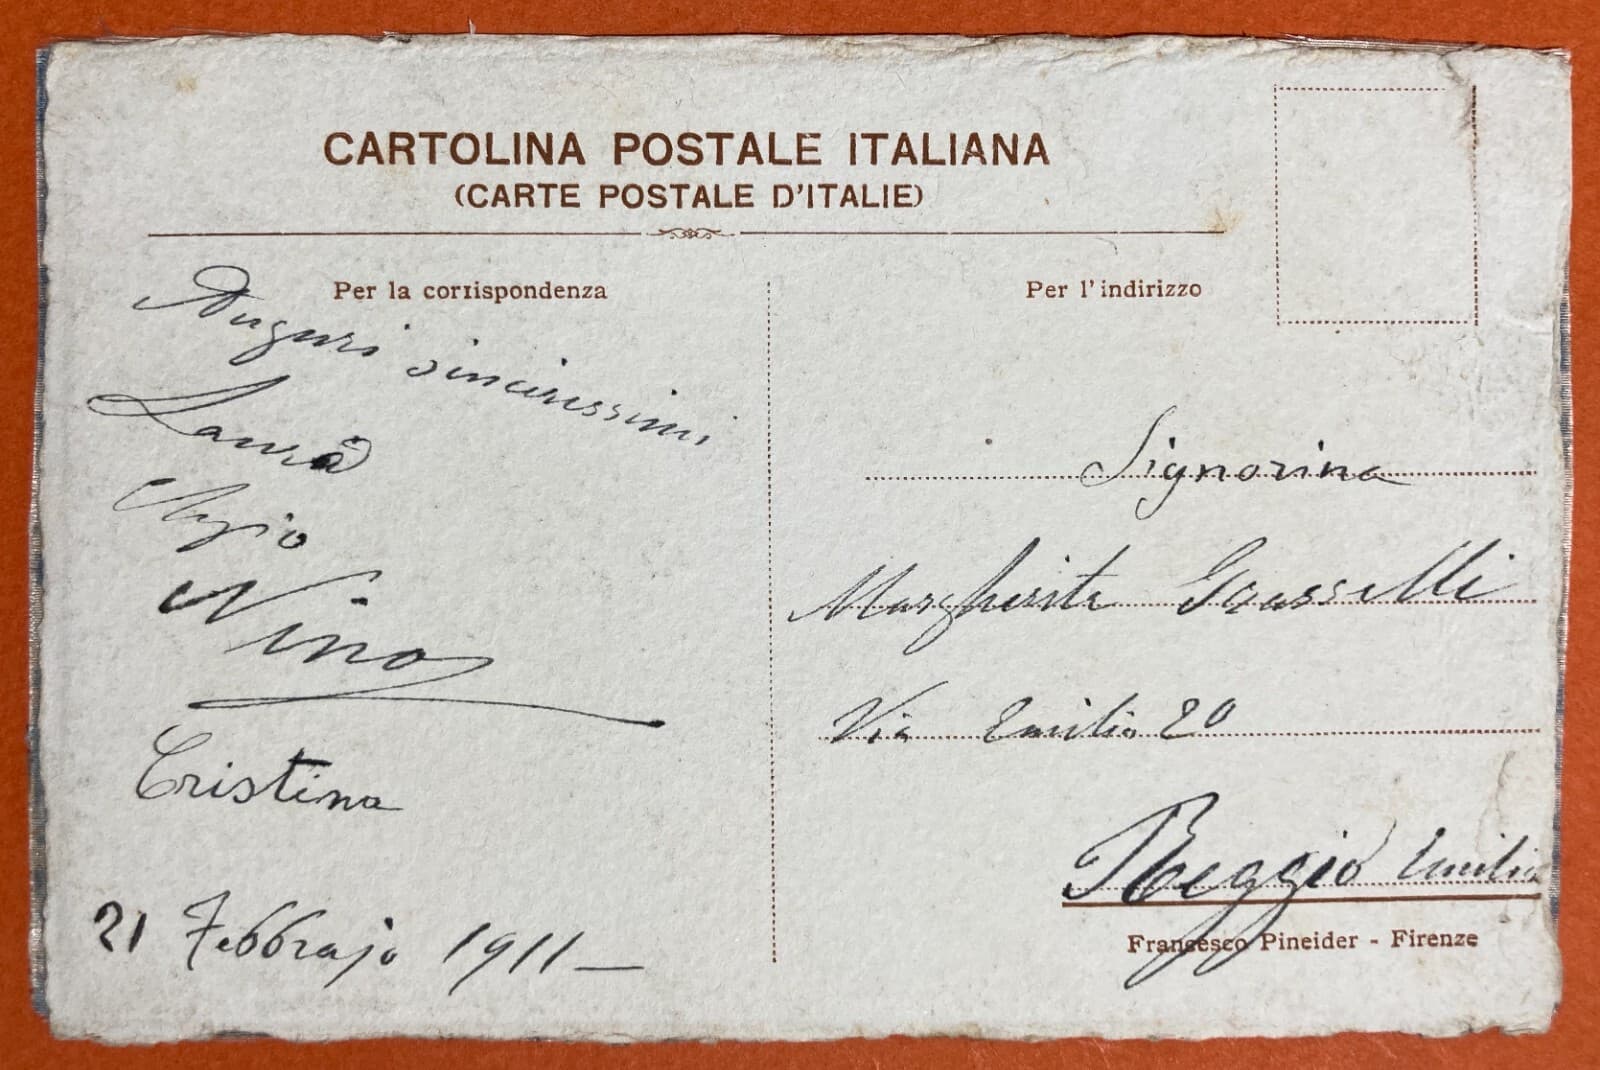 CARTOLINA POSTALE ITALIANA
(CARTE POSTALE D'ITALIE)
Per la corrispondenza
Auguri sincerissimi
Laura
Nino
Cristina
21 Febbrajo 1911 —
Per l'indirizzo
Signorina
Margherita
Via Emilia 20
Reggio Emilia
Francesco Pineider - Firenze